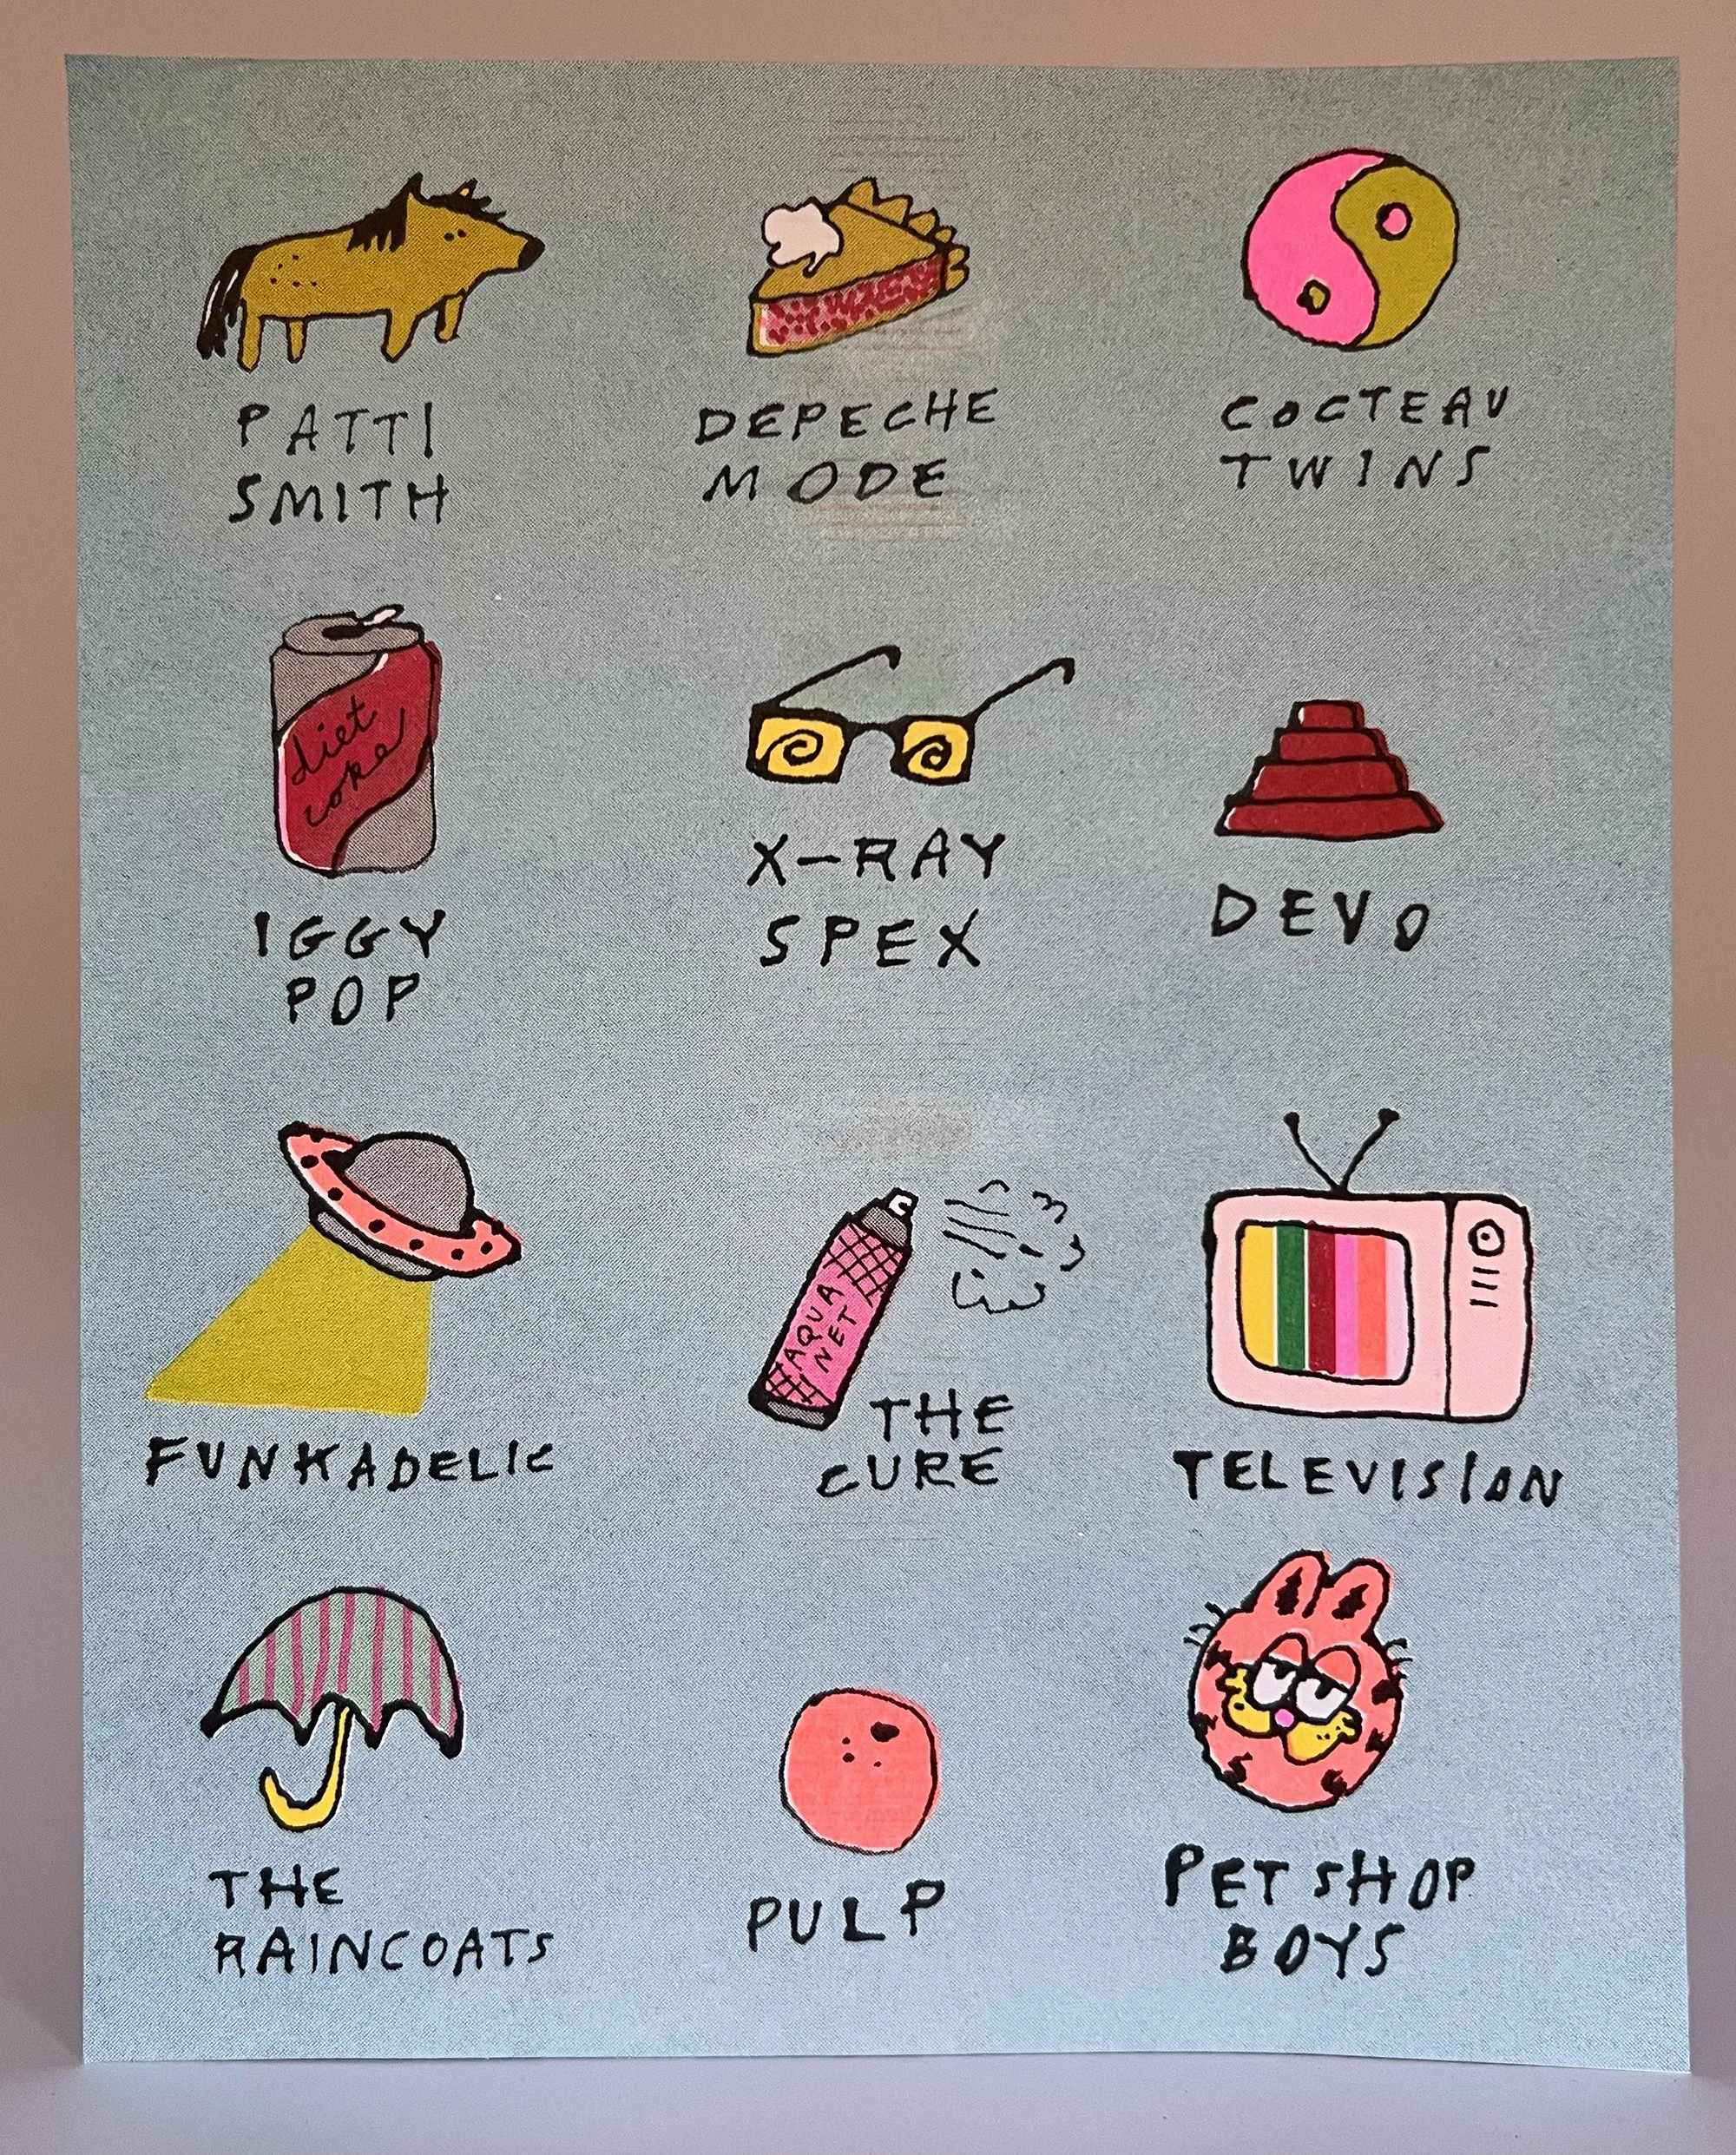 PATTI
SMITH
DEPECHE
MODE
COCTEAU
TWINS
diet
coke
IGGY
POP
X-RAY
SPEX
DEVO
FUNKADELIC
AQUA
NET
THE
CURE
TELEVISION
THE
RAINCOATS
PULP
PET SHOP
BOYS